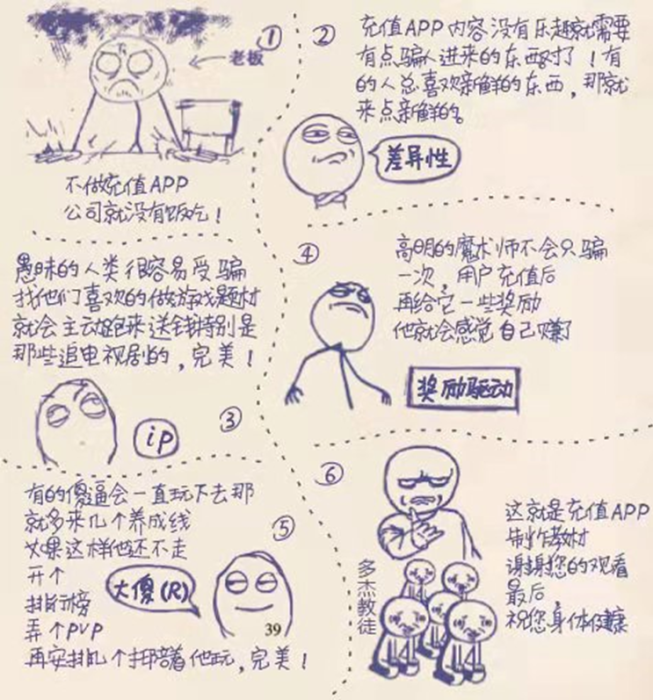 ①
老板
不做充值APP
公司就没有饭吃！
②
充值APP内容没有乐趣就需要
有点骗人进来的东西对了！有
的人总喜欢新鲜的东西，那就
来点新鲜的。
差异性
愚昧的人类很容易受骗
找他们喜欢的做游戏题材
就会主动跑来送钱特别是
那些追电视剧的，完美！
ip
③
④
高明的魔术师不会只骗
一次，用户充值后
再给它一些奖励
他就会感觉自己赚了
奖励驱动
有的傻逼会一直玩下去那
就多来几个养成线
如果这样他还不走
开个
排行榜
弄个PVP
再安排几个托陪着他玩，完美！
⑤
大傻(R)
39
⑥
多杰教徒
这就是充值APP
制作教材
谢谢您的观看
最后，
祝您身体健康